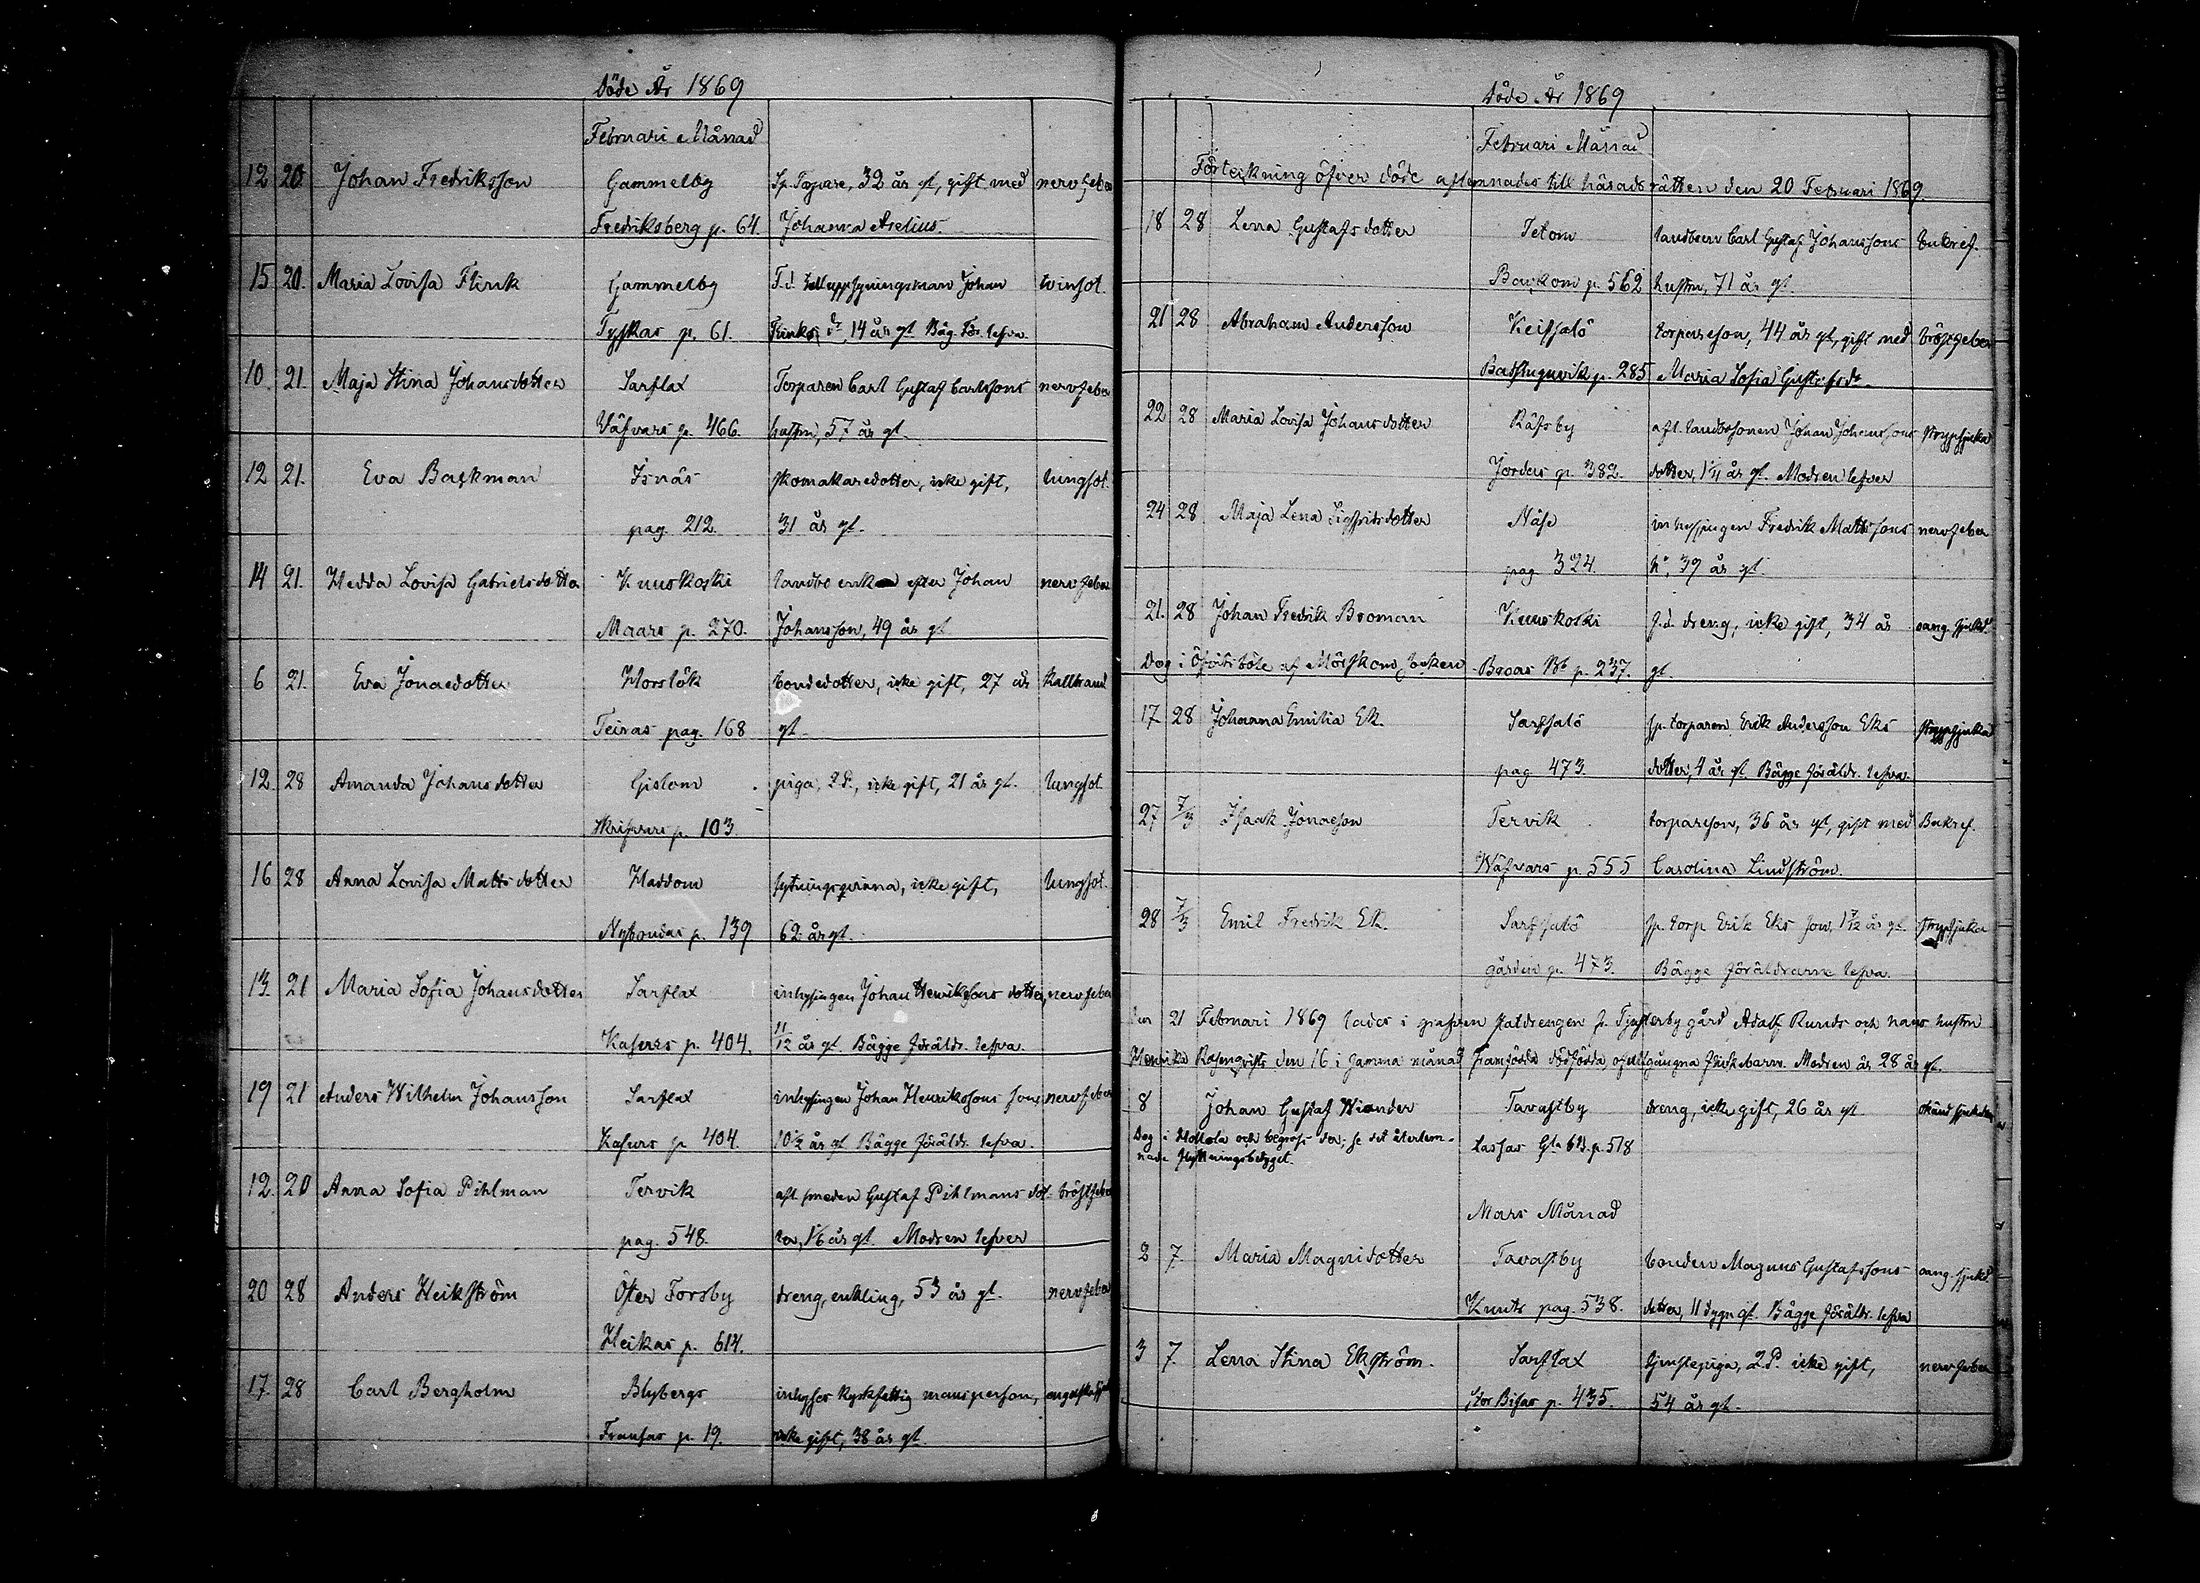 Döde År 1869
Februari Månad
12 20 Johan Fredriksson Gammelby Sp. Torpare, 32 år gl, gift med nervfeber
Fredriksberg p. 64. Johanna Aselius.
15 20. Maria Lovisa Flink Gammelby F.d. tulluppsyningsman Johan tvinsot.
Tyskas p. 61. Flinks dr, 14 år gl. Bäg. För. lefva.
10. 21. Maja Stina Johansdotter Sarflax Torparen Carl Gustaf Carlssons nervfeber
Väfvars p. 466. hustru, 57 år gl.
12 21. Eva Backman Isnäs skomakaredotter, icke gift, lungsot.
pag. 212. 31 år gl.
14 21. Hedda Lovisa Gabrielsdotter Kuuskoski landbo enka efter Johan nervfeber
Maars p. 270. Johansson, 49 år gl
6 21. Eva Jonaedotter Horslök bondedotter, icke gift, 27 år Kallbrand
Teiras pag. 168 gl.
12 28 Amanda Johansdotter Gislom piga, 2 P., icke gift, 21 år gl. lungsot
Skrifvars p. 103
16 28 Anna Lovisa Mattsdotter Haddom sytningsqvinna, icke gift, lungsot.
Nybondas p. 139 62 år gl.
13. 21 Maria Sofia Johansdotter Sarflax inhysingen Johan Henrikssons dotter, nervfeber
Kasurs p. 404. 11/12 år gl. Bägge föräldr. lefva.
19 21 Anders Wilhelm Johansson Sarflax inhysingen Johan Henrikssons son, nervfeber
Kasurs p 404. 10½ år gl Bägge föräldr. lefva.
12. 20 Anna Sofia Pihlman Tervik afl. smeden Gustaf Pihlmans dot- bröstfeber
pag. 548. ter, 1/6 år gl. Modren lefver
20 28 Anders Heikström Öster Forsby dreng, enkling, 53 år gl. nervfeber
Heikas p. 614.
17. 28 Carl Bergholm Blybergs inhyses kyrkfattig mansperson,
Fransas p. 19. icke gift, 38 år gl.
Döde År 1869
Februari Månad
Förteckning öfver döde aflemnades till häradsrätten den 20 Februari 1869.
18 28 Lena Gustafsdotter Tetom landboen Carl Gustaf Johanssons bukref.
Backom p. 562 hustru, 71 år gl
21 28 Abraham Andersson Keitsalö torpareson, 44 år gl, gift med bröstfeber
p. 285 Maria Sofia Gustafsdr.
22 28 Maria Lovisa Johansdotter Räfsby afl. landbosonen Johan Johanssons strypsjuka
Jordas p. 382. dotter, år gl. Modren lefver
24 28 Maja Lena Sigfridsdotter Näse inhysingen Fredrik Mattssons nervfeber
pag 324. h., 39 år gl
21. 28 Johan Fredrik Broman Kuuskoski f.d. dreng, icke gift, 34 år oang. sjukd.
Dog i af Mörskom socken p. 237. gl.
17 28 Johanna Emilia Ek. Sarfsalö sp. torparen Erik Andersson Eks strypsjuka
pag 473. dotter, 4 år gl. Bägge föräldr. lefva.
27 7/3 Isaak Jonaeson Tervik torpareson, 36 år gl, gift med Bukref.
Wäfvars p. 555 Carolina Lindström.
28 7/3 Emil Fredrik Ek. Sarfsalö sp. torp Erik Eks son, 1 7/12 år gl. strypsjuka
gården p. 473. Bägge föräldrarne lefva.
den 21 Februari 1869 lades i grafven statdrengen fr. Tjusterby gård Adolf Runds och hans hustru
Henrika Rosenqvists den 16 i samma månad framfödda dödfödda, ofullgångna flickebarn. Modren är 28 år gl.
8 Johan Gustaf Wiander Tavastby dreng, icke gift, 26 år gl
Dog i Hollola och begrafs der, se det återlem- Lassas Gla p. 518
nade flyttningsbetyget.
Mars Månad
2 7. Maria Magnidotter Tavastby bonden Magnus Gustafssons oang. sjukd
Knuts pag. 538. dotter, 11 dygn gl. Bägge föräldr. lefva
3 7 Lena Stina Ekström. Sarflax tjenstepiga, 2 P. icke gift, nervfeber
Stor Bisas p. 435. 54 år gl.